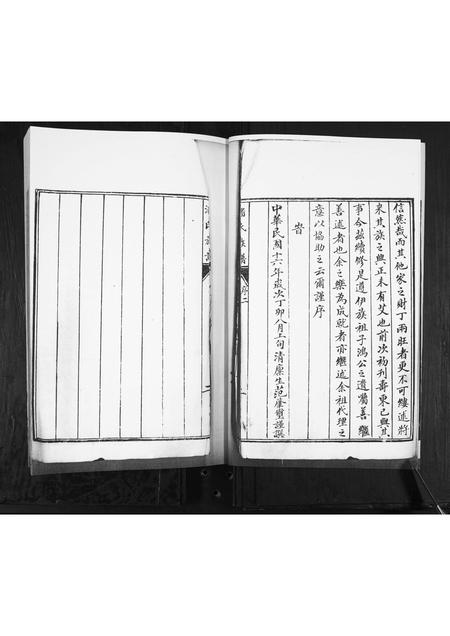 信然哉而其他家之財丁兩旺者更不可縷述將
來其族之興正未有艾也前次初刊壽東已與其
事今茲續修是遵伊族祖子鴻公之遺囑善繼
善述者也余之樂為成就者亦繼述余祖代理之
意以協助之云爾謹序
旹
中華民國十六年歲次丁卯八月上旬清廩生范
謹撰
氏族譜
序二